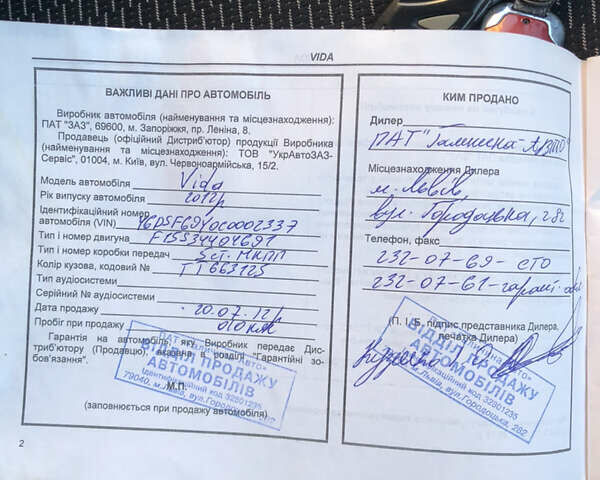 VIDA
ВАЖЛИВІ ДАНІ ПРО АВТОМОБІЛЬ
Виробник автомобіля (найменування та місцезнаходження):
ПАТ "ЗАЗ", 69600, м. Запоріжжя, пр. Леніна, 8.
Продавець (офіційний Дистриб'ютор) продукції Виробника
(найменування та місцезнаходження): ТОВ "УкрАвтоЗАЗ-
Сервіс", 01004, м. Київ, вул. Червоноармійська, 15/2.
Модель автомобіля Vida
Рік випуску автомобіля 2012р
Ідентифікаційний номер
автомобіля (VIN) Y6DSF69Y0C0002337
Тип і номер двигуна F15S34404691
Тип і номер коробки передач 5ст. МКПП
Колір кузова, кодовий №
Тип аудіосистеми
Серійний № аудіосистеми
Дата продажу 20.07.12р
Пробіг при продажу 010 км
Гарантія на автомобіль, яку Виробник передає Дис-
триб'ютору (Продавцю), вказана в розділі "Гарантійні зо-
бов'язання".
ВІДДІЛ ПРОДАЖУ
АВТОМОБІЛІВ
Ідентифікаційний код 32801235
79040, м. Львів, вул. Городоцька, 282
М.П.
(заповнюється при продажу автомобіля)
2
КИМ ПРОДАНО
Дилер
ПАТ "Галичина-Авто"
Місцезнаходження Дилера
м. Львів,
вул. Городоцька, 282
Телефон, факс
232-07-69 - СТО
232-07-61 -
(П. І. Б., підпис представника Дилера,
печатка Дилера)
ВІДДІЛ ПРОДАЖУ
АВТОМОБІЛІВ
код 32801235
Львів, вул. Городоцька, 282